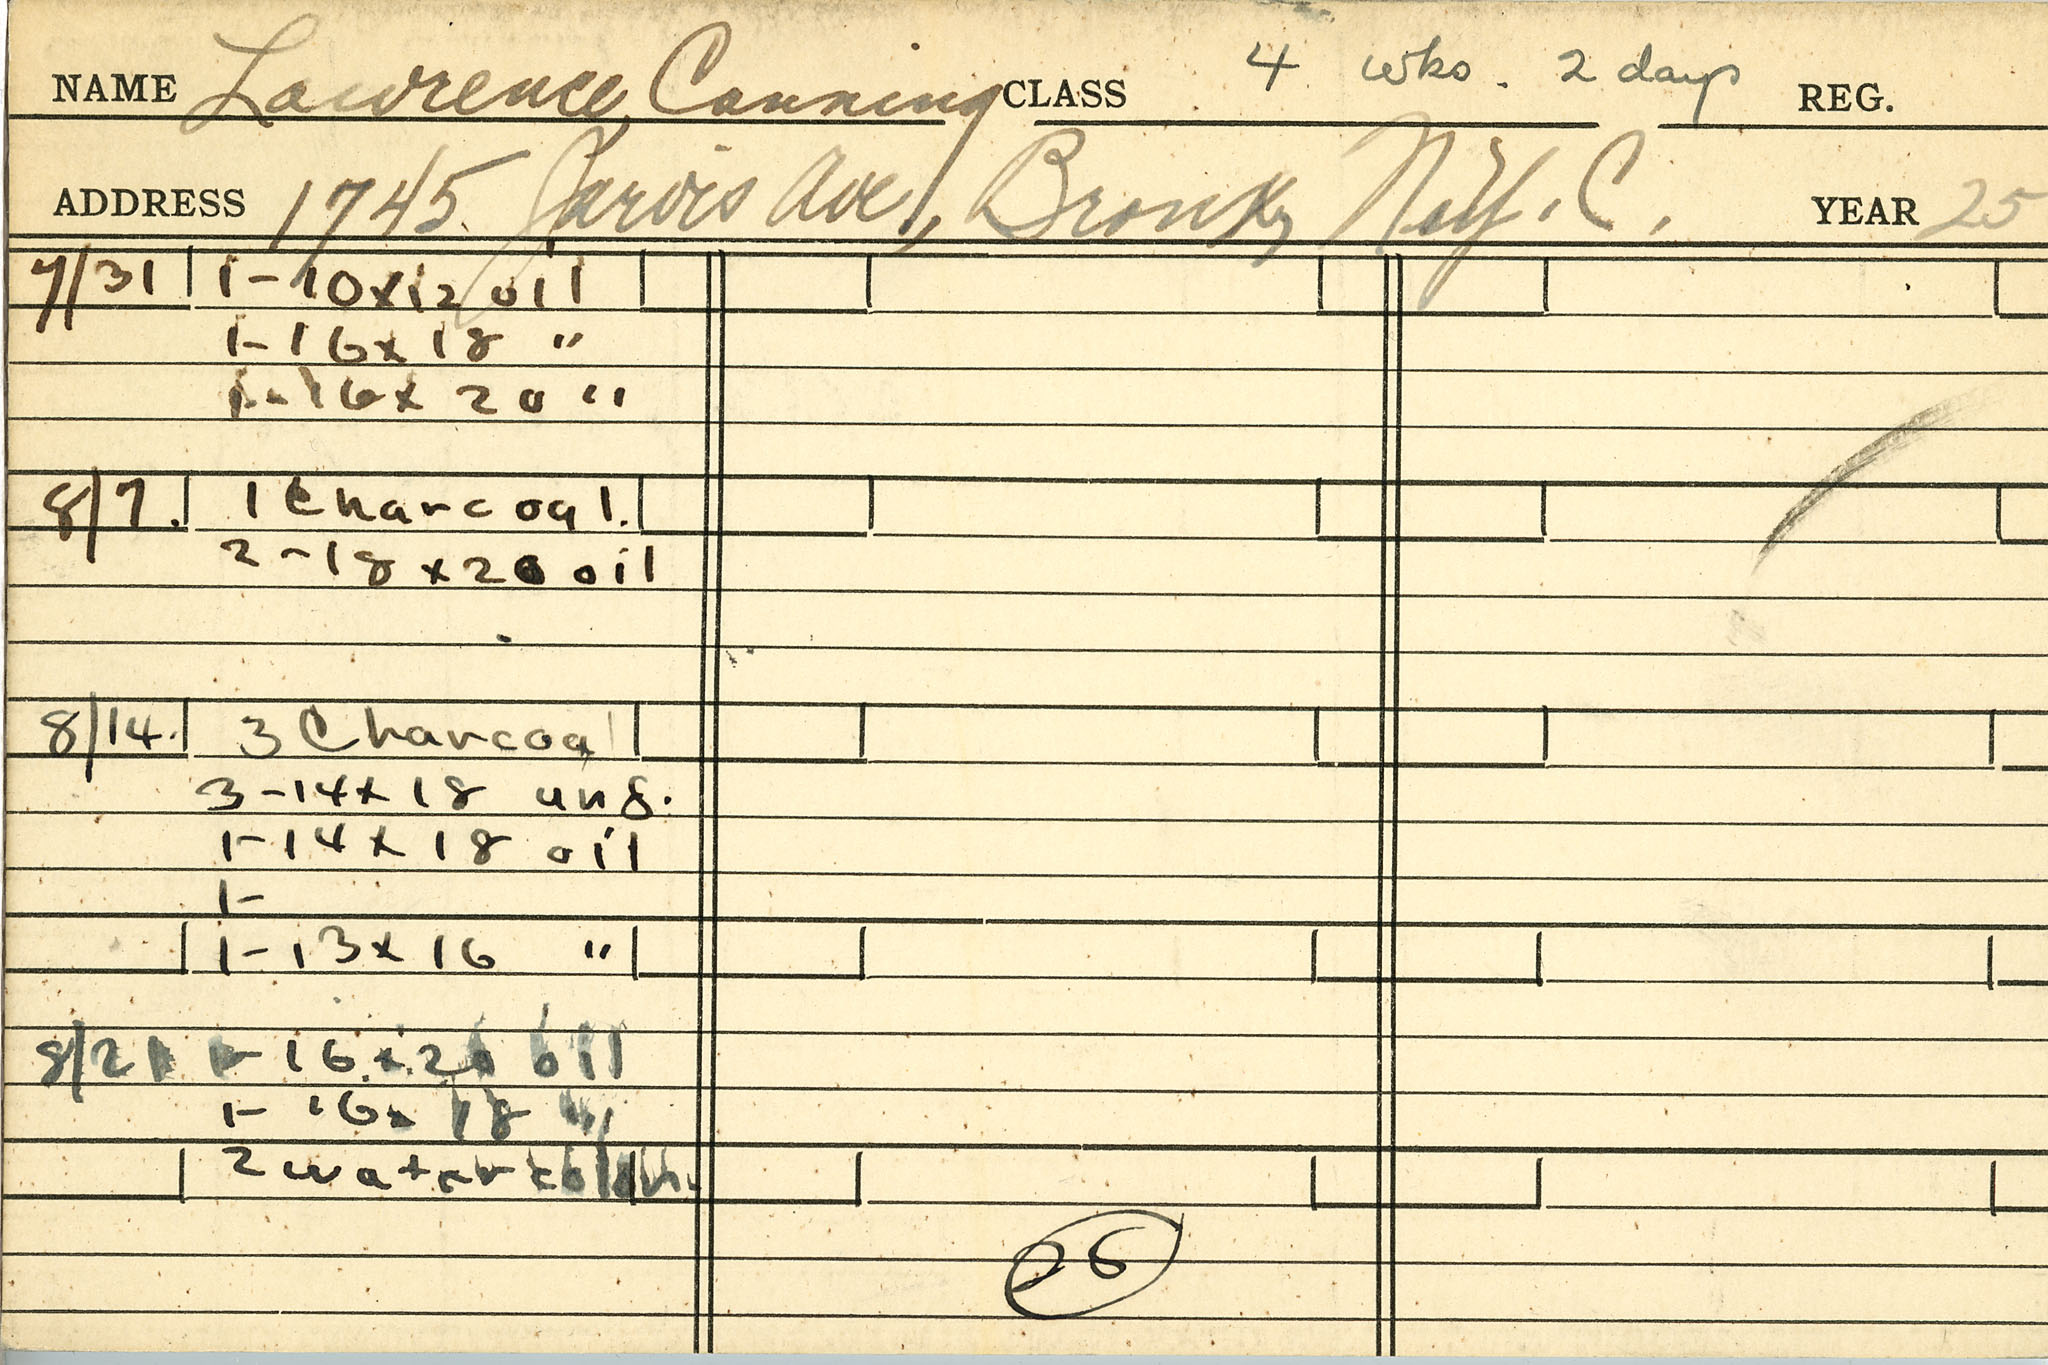 NAME Lawrence Canning CLASS 4 wks. 2 days REG.
ADDRESS 1745 Jarvis Ave, Bronx, N.Y.C. YEAR 25
7/31 1-10x12 oil
1-16x18 "
1-16x20 "
8/7. 1 Charcoal.
2-18x20 oil
8/14. 3 Charcoal
3-14x18
1-14x18 oil
1-
1-13x16 "
8/21 1-16x20 oil
1-16x18 "
2 water color.
26